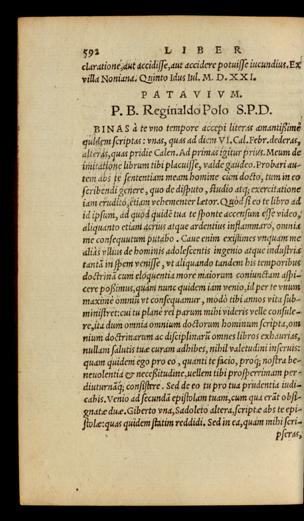 592 LIBER
claratione, aut accidisse, aut accidere potuisse iucundius. Ex
villa Noniana. Quinto Idus Iul. M. D. XXI.
PATAVIVM.
P. B. Reginaldo Polo S. P. D.
BINAS à te vno tempore accepi literas amantissimè
quidem scriptas: vnas, quas ad diem VI. Cal. Febr. dederas,
alteras, quas pridie Calen. Ad primas igitur prius. Meum de
imitatione librum tibi placuisse, valde gaudeo. Probari au-
tem abs te sententiam meam homine cùm docto, tum in eo
scribendi genere, quo de disputo, studio atq; exercitatione
iam erudito, etiam vehementer lætor. Quòd si eo te libro ad
id ipsum, ad quod quidē tua te sponte accensum esse video,
aliquanto etiam acrius atque ardentius inflammaro, omnia
me consequutum putabo. Caue enim existimes vnquam me
aliàs vllius de hominis adolescentis ingenio atque industria
tantā in spem venisse, vt aliquando tandem his temporibus
doctrinā cum eloquentia more maiorum coniunctam aspi-
cere possimus, quàm nunc quidem iam venio, id per te vnum
maximè omniū vt consequamur, modò tibi annos vita sub-
ministret: cui tu planè rei parum mihi videris velle consule-
re, ita dum omnia omnium doctorum hominum scripta, om
nium doctrinarum ac disciplinarū omnes libros exhaurias,
nullam salutis tuæ curam adhibes, nihil valetudini inseruis:
quam quidem ego pro eo, quanti te facio, proq; nostra be-
neuolentia & necessitudine, uellem tibi prosperrimam per-
diuturnāq; consistere. Sed de eo tu pro tua prudentia iudi-
cabis. Venio ad secundā epistolam tuam, cum qua erāt obsi-
gnatæ duæ. Giberto vna, Sadoleto altera, scriptæ abs te epi-
stolæ: quas quidem statim reddidi. Sed in ea, quam mihi scri-
pseras,